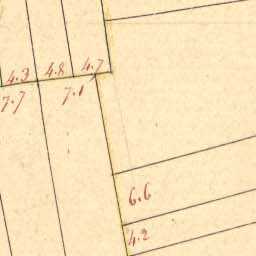 4.3 4.8 4.7
7.7 7.1
6.6
4.2